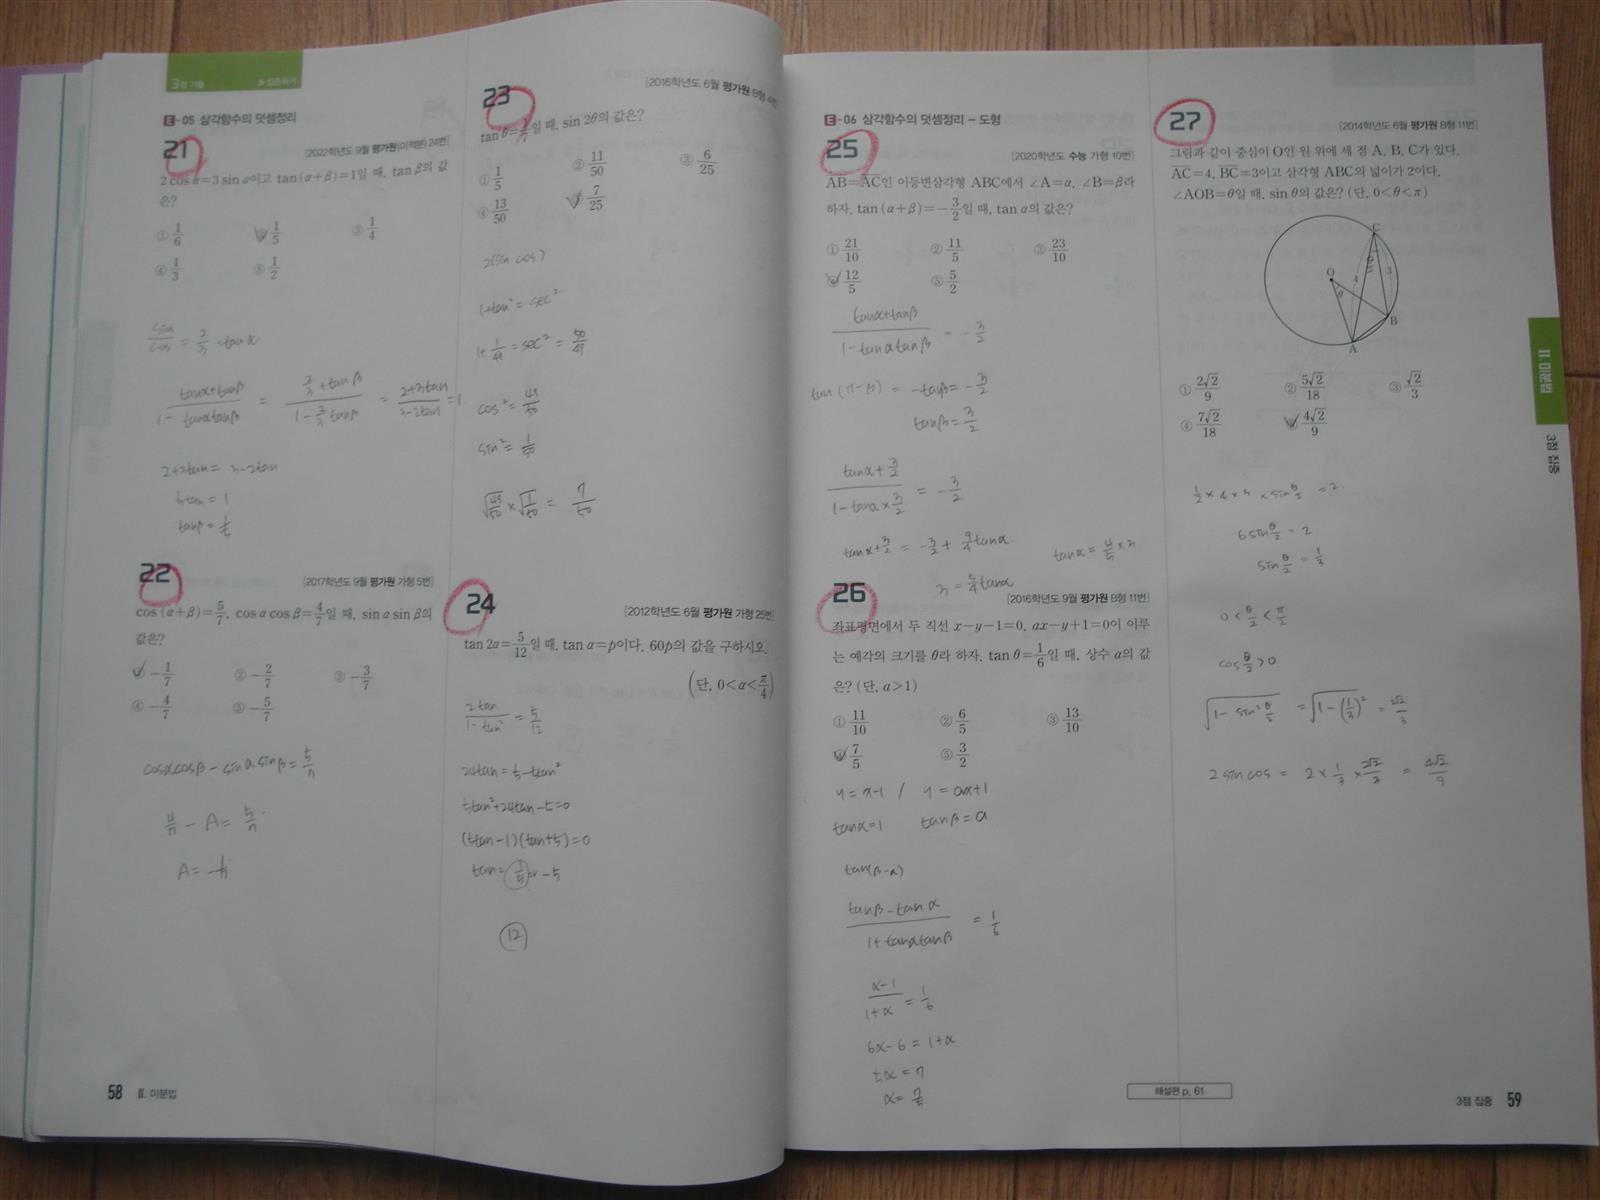 3점 기출 ▶집중하기
E-05 삼각함수의 덧셈정리
21
[2022학년도 9월 평가원(미적분) 24번]
2 cos α=3 sin α이고 tan(α+β)=1일 때, tan β의 값
은?
① 1/6 ② 1/5 ③ 1/4
④ 1/3 ⑤ 1/2
sin/cos = 2/3 = tanα
(tanα+tanβ)/(1-tanαtanβ) = (2/3+tanβ)/(1-2/3tanβ) = (2+3tan)/(3-2tan) = 1
2+3tan = 3-2tan
5tan = 1
tanβ = 1/5
22
[2017학년도 9월 평가원 가형 5번]
cos (α+β)=5/7, cos α cos β=4/7일 때, sin α sin β의
값은?
① -1/7 ② -2/7 ③ -3/7
④ -4/7 ⑤ -5/7
cosαcosβ - sinα sinβ = 5/7
4/7 - A = 5/7
A = -1/7
23
[2016학년도 6월 평가원 B형
tan θ=1/7일 때, sin 2θ의 값은?
① 1/5 ② 11/50 ③ 6/25
④ 13/50 ⑤ 7/25
2(sin cos)
1+tan² = sec²
1+1/49 = sec² = 50/49
cos² = 49/50
sin² = 1/50
√49/50 × √1/50 = 7/50
24
[2012학년도 6월 평가원 가형 25번]
tan 2α=5/12일 때, tan α=p이다. 60p의 값을 구하시오.
(단, 0<α<π/4)
2tan/(1-tan²) = 5/12
24tan = 5-5tan²
5tan²+24tan-5=0
(5tan-1)(tan+5)=0
tan = 1/5 or -5
12
58 Ⅱ. 미분법
E-06 삼각함수의 덧셈정리 – 도형
25
[2020학년도 수능 가형 10번]
AB=AC인 이등변삼각형 ABC에서 ∠A=α, ∠B=β라
하자. tan (α+β)=-3/2일 때, tan α의 값은?
① 21/10 ② 11/5 ③ 23/10
④ 12/5 ⑤ 5/2
(tanα+tanβ)/(1-tanαtanβ) = -3/2
tan(π-β) = -tanβ = -3/2
tanβ = 3/2
(tanα+3/2)/(1-tanα×3/2) = -3/2
tanα+3/2 = -3/2+9/4tanα
3 = 5/4tanα
tanα = 4/5×3
26
[2016학년도 9월 평가원 B형 11번]
좌표평면에서 두 직선 x-y-1=0, ax-y+1=0이 이루
는 예각의 크기를 θ라 하자. tan θ=1/6일 때, 상수 a의 값
은? (단, a>1)
① 11/10 ② 6/5 ③ 13/10
④ 7/5 ⑤ 3/2
y=x-1 / y=ax+1
tanα=1 tanβ=a
tan(β-α)
(tanβ-tanα)/(1+tanαtanβ) = 1/6
(α-1)/(1+α) = 1/6
6α-6 = 1+α
5α = 7
α = 7/5
27
[2014학년도 6월 평가원 B형 11번]
그림과 같이 중심이 O인 원 위에 세 점 A, B, C가 있다.
AC=4, BC=3이고 삼각형 ABC의 넓이가 2이다.
∠AOB=θ일 때, sin θ의 값은? (단, 0<θ<π)
C
O
θ
4
3
B
A
① 2√2/9 ② 5√2/18 ③ √2/3
④ 7√2/18 ⑤ 4√2/9
1/2×4×3×sinθ/2 = 2.
6sinθ/2 = 2
sinθ/2 = 1/3
0<θ/2<π/2
cosθ/2>0
√1-sin²θ/2 = √1-(1/3)² = 2√2/3
2sincos = 2×1/3×2√2/3 = 4√2/9
Ⅱ. 미분법
3점 집중
해설편 p. 61
3점 집중 59